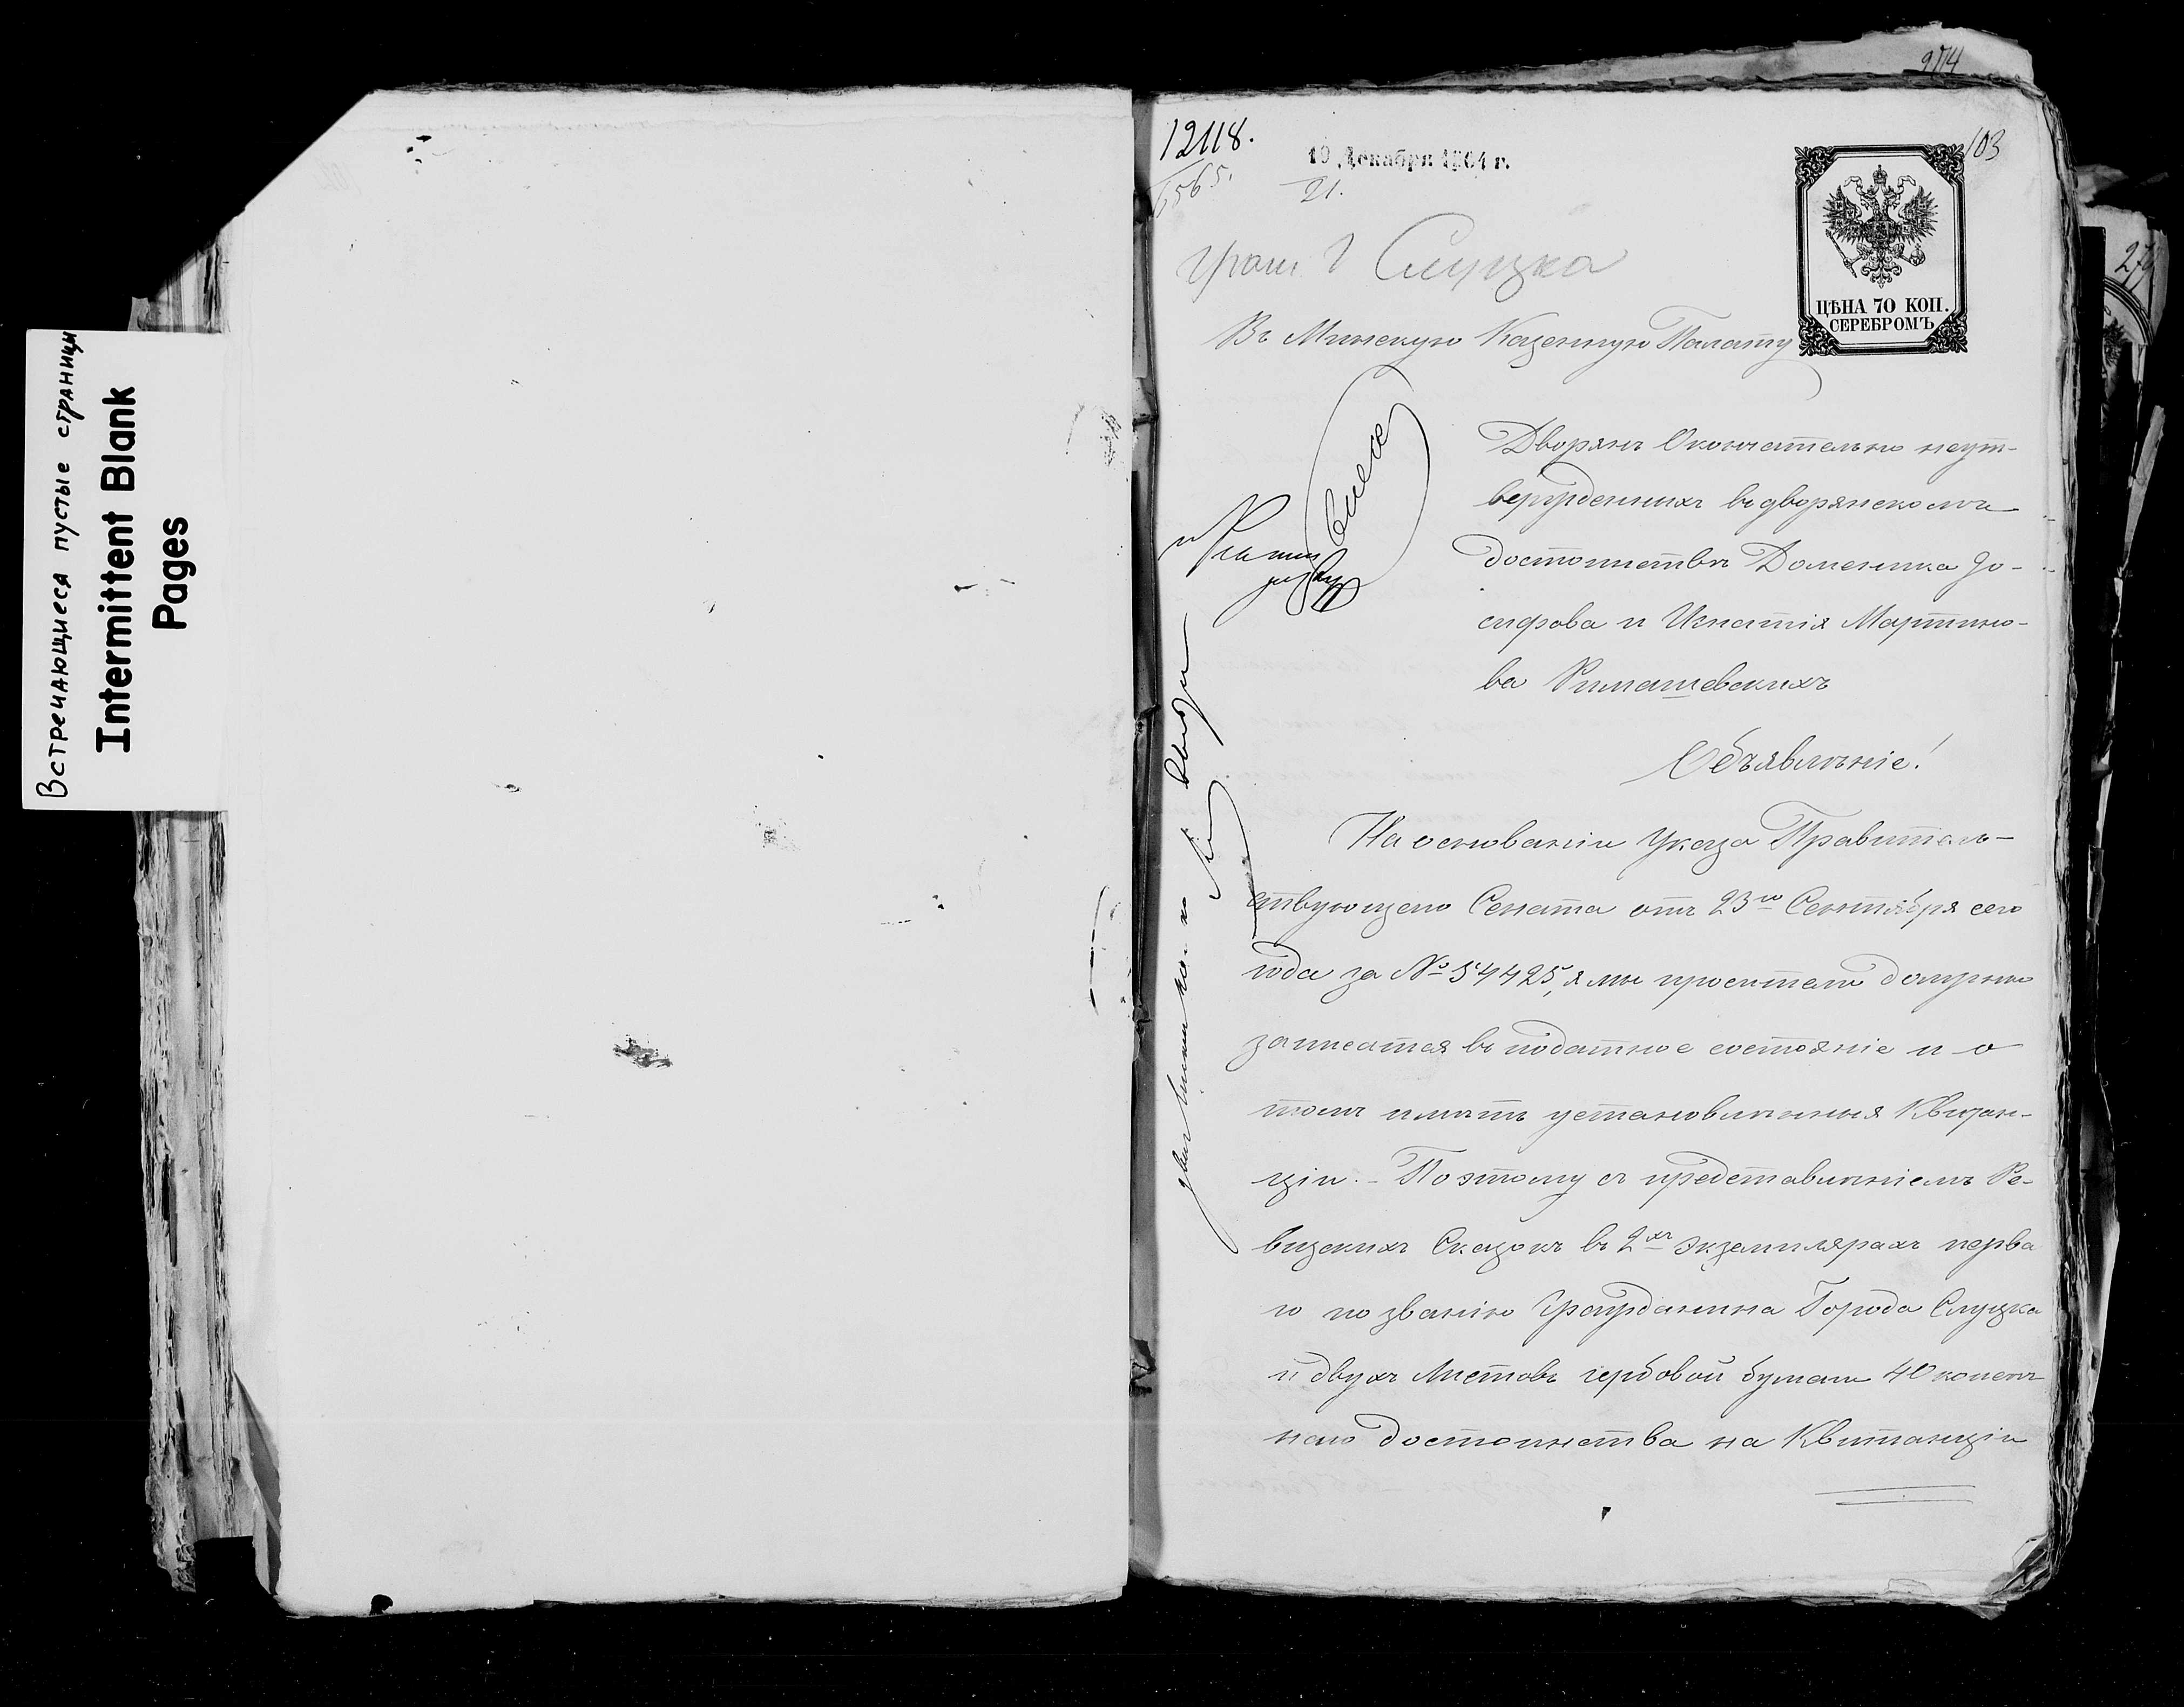 Встречающиеся пустые страницы
Intermittent Blank
Pages
274
12118.
6565.
19 Декабря 1864 г.
21.
103
граж г Слуцка
ЦѢНА 70 КОП.
СЕРЕБРОМЪ
Въ Минскую Казенную Палату
Дворянъ Окончательно неут-
вержденныхъ въ дворянскомъ
достоинствѣ Доменика Іо-
сифова и Игнатія Мартино-
ва Римашевскихъ
Объявленіе!
На основаніи Указа Правитель-
ствующего Сената отъ 23го Сентября сего
года за № 54425, я мы просители должны
записатся въ податное состояніе и о
томъ имѣть установленныя Квитан-
ціи. - Поэтому съ представленіемъ Ре-
визскихъ Сказокъ въ 2хъ экземплярахъ перва
го по званію Гражданина Города Слуцка
и двухъ листовъ гербовой бумаги 40 копѣеч
наго достоинства на Квитанціи
27